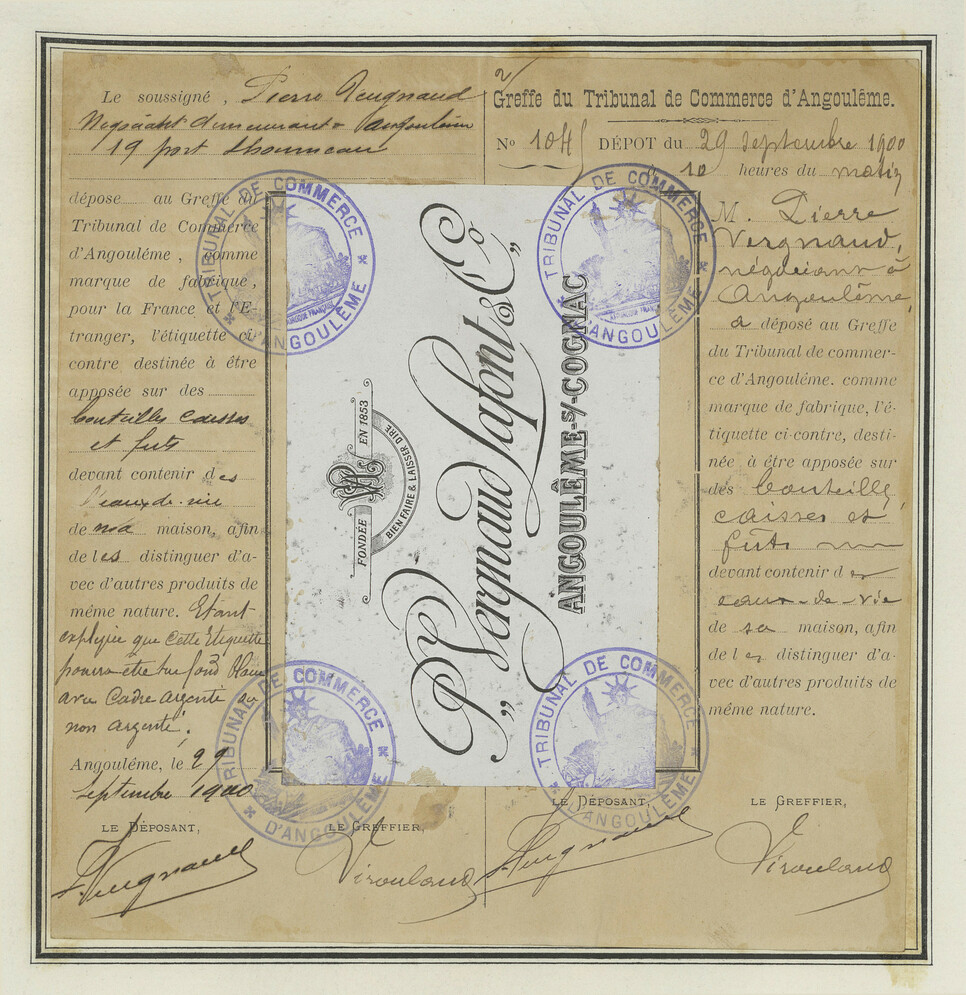 Le soussigné, Pierre Vergnaud
Négociant demeurant à Angoulême
19 port Lhoumeau
dépose au Greffe du
Tribunal de Commerce
d'Angoulême, comme
marque de fabrique,
pour la France et l'E-
tranger, l'étiquette ci-
contre destinée à être
apposée sur des
bouteilles caisses
et futs
devant contenir des
eaux-de-vie
de ma maison, afin
de les distinguer d'a-
vec d'autres produits de
même nature. Etant
expliqué que cette Etiquette
pourra être sur fond blanc
avec Cadre argenté ou
non argenté.
Angoulême, le 29
Septembre 1900
LE DÉPOSANT,
LE GREFFIER,
P. Vergnaud
Virouland
Greffe du Tribunal de Commerce d'Angoulême.
No 1045 DÉPOT du 29 Septembre 1900
à 10 heures du matin
M. Pierre
Vergnaud,
négociant à
Angoulême,
a déposé au Greffe
du Tribunal de commer-
ce d'Angoulême. comme
marque de fabrique, l'é-
tiquette ci-contre, desti-
née à être apposée sur
des bouteilles
caisses et
fûts
devant contenir des
eaux-de-vie
de sa maison, afin
de les distinguer d'a-
vec d'autres produits de
même nature.
LE DÉPOSANT,
LE GREFFIER,
P. Vergnaud
Virouland
FONDÉE EN 1853
BIEN FAIRE & LAISSER DIRE
„Pre Vergnaud Lafont & Co”
ANGOULÊME S/-COGNAC
TRIBUNAL DE COMMERCE
D'ANGOULÊME
TRIBUNAL DE COMMERCE
D'ANGOULÊME
TRIBUNAL DE COMMERCE
D'ANGOULÊME
TRIBUNAL DE COMMERCE
D'ANGOULÊME